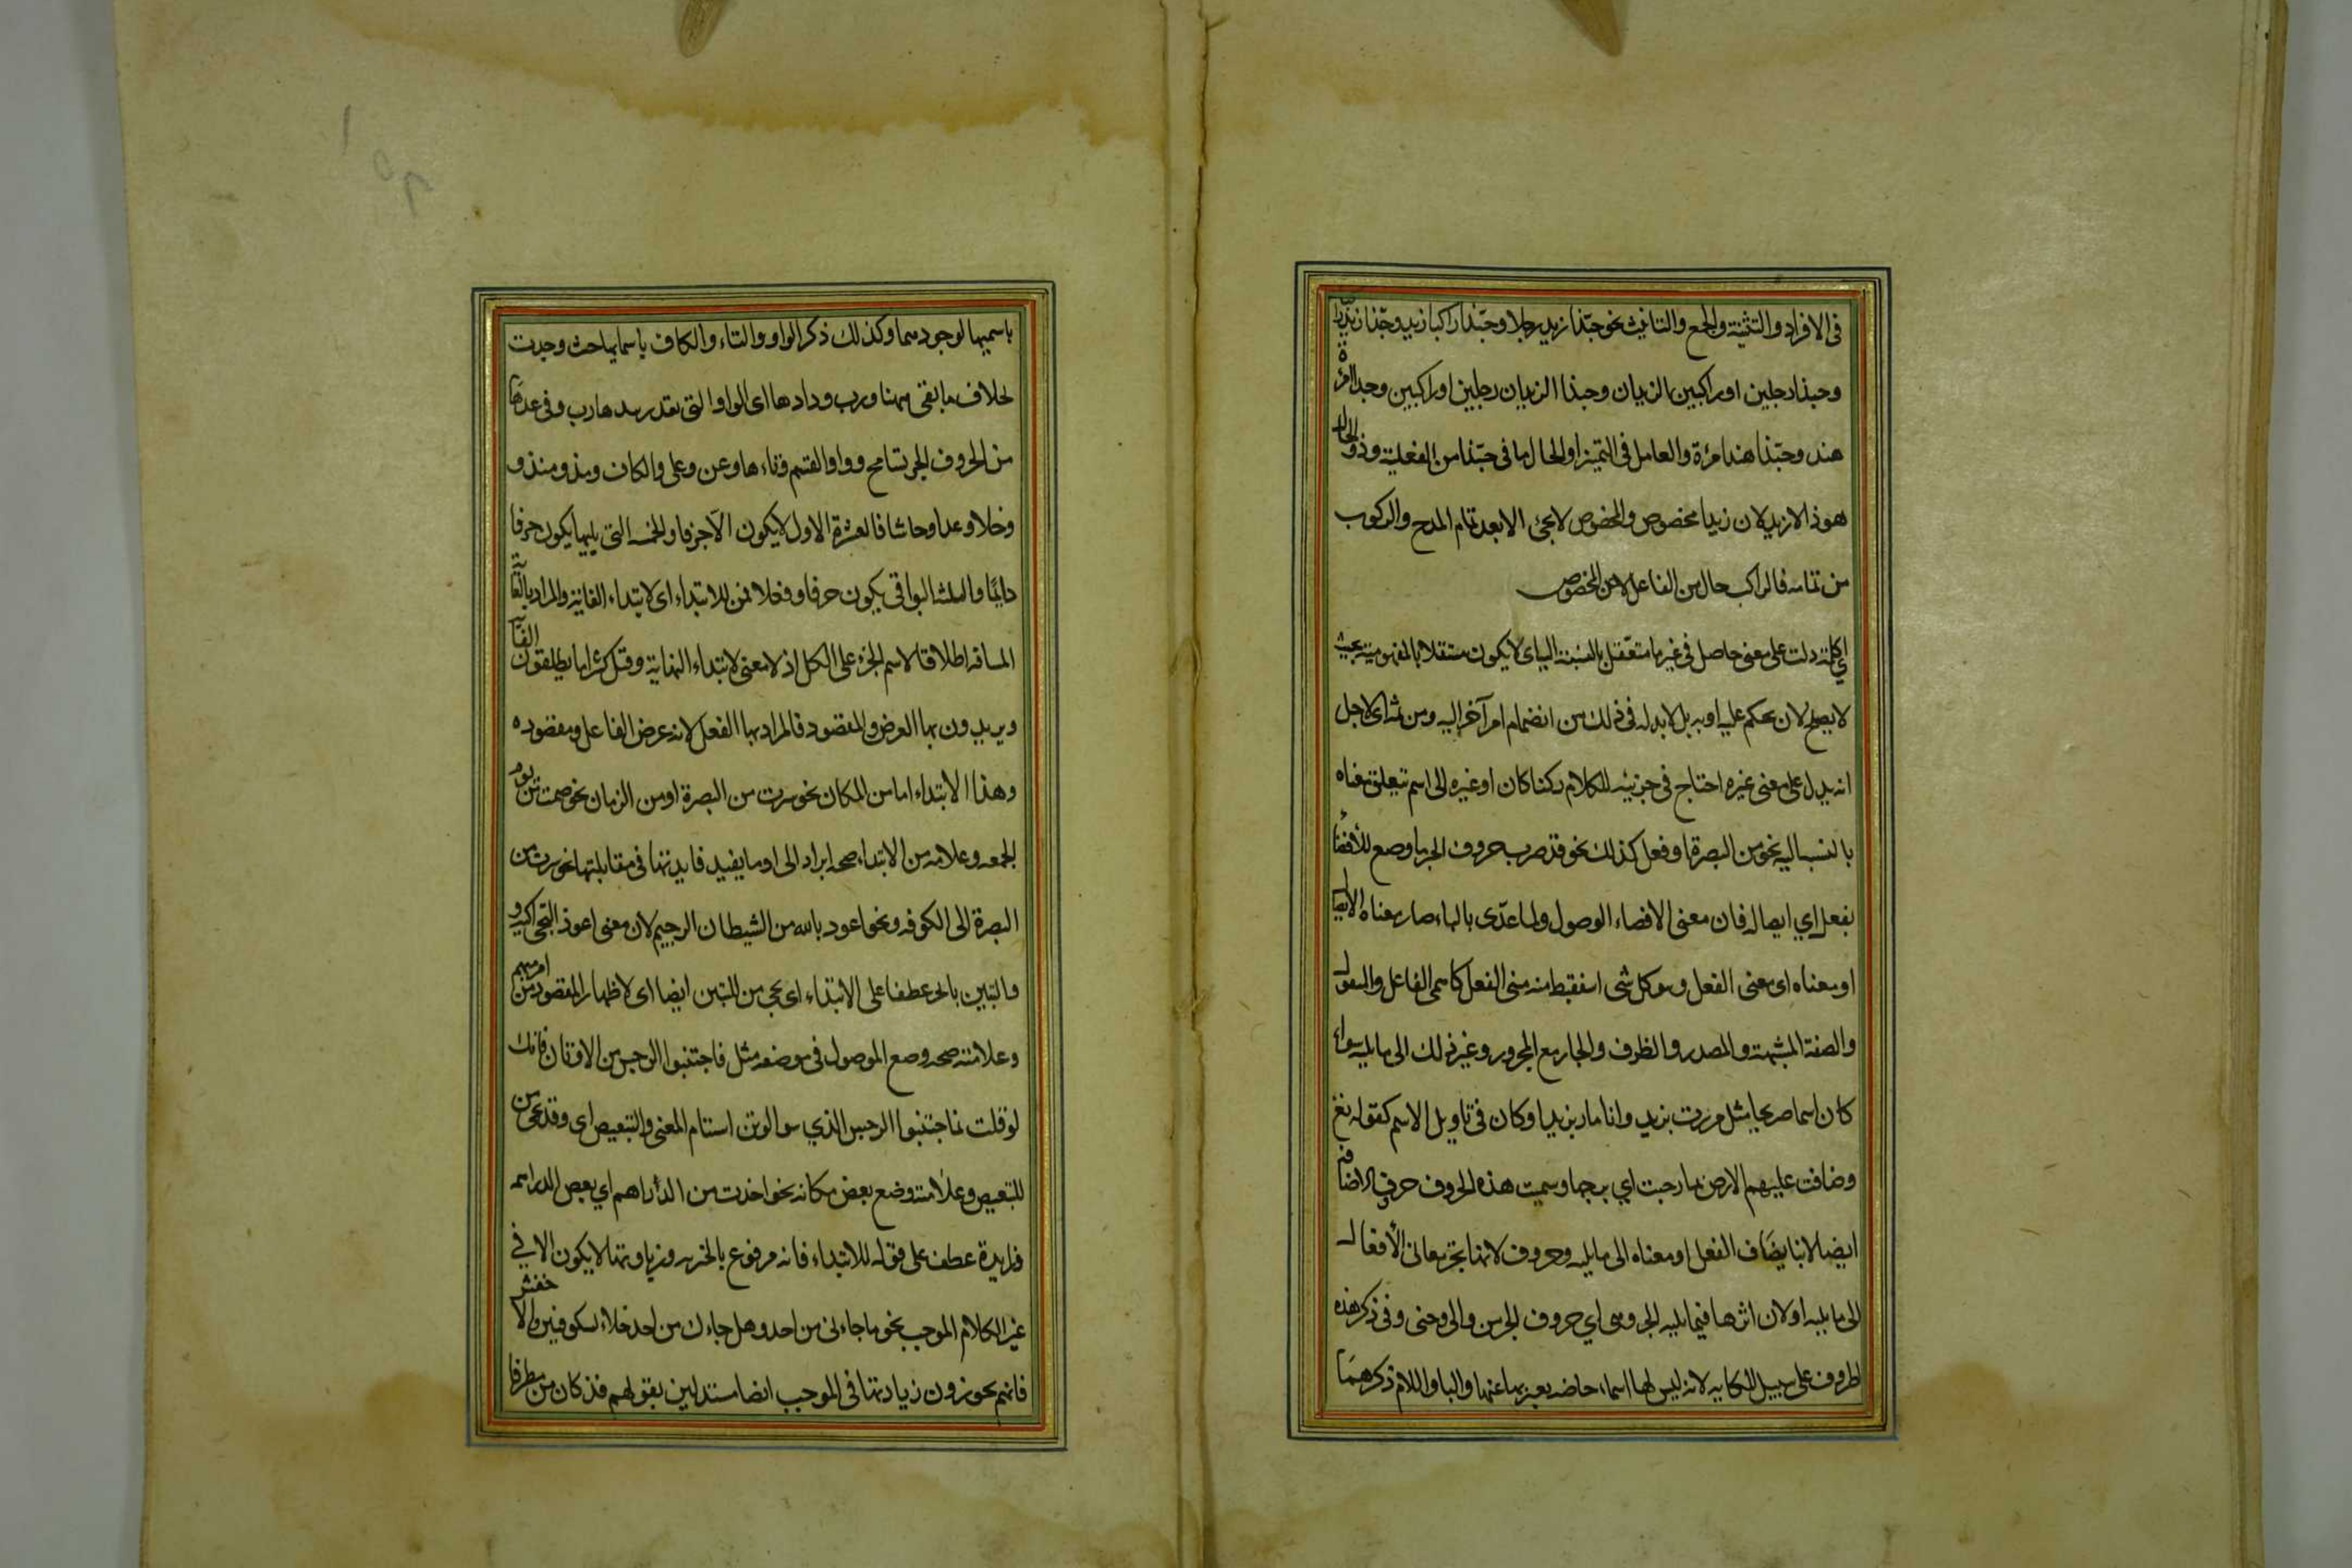 فى الافراد والتثنية والجمع والتانيث نحو حبّذا زيد رجلا وحبّذا راكبا زيد وحبّذا زيد راكبا
وحبذا رجلين او راكبين الزيدان وحبذا الزيدان رجلين او راكبين وحبذا امرأة
هند وحبّذا هند امرءة والعامل فى التميز او الحال ما فى حبّذا من الفعلية وذو الحال
هو ذا لا زيد لان زيدا مخصوص والمخصوص لا يجئ الا بعد تمام المدح والركوب
من تمامه فالراكب حال من الفاعل لا من المخصوص
اى كلمة دلت على معنى حاصل فى غيرها متعّقل بالنسبة اليه اى لا يكون مستقلا بالمفهومية بحيث
لا يصلح لان يحكم عليه او به بل لابد له فى ذلك من انضمام امر آخر اليه ومن ثم اى لاجل
انه يدل على معنى غيره احتاج فى جزئيته للكلام ركنا كان او غيره الى اسم يتعلق معناه
بالنسبة اليه نحو من البصرة او فعل كذلك نحو قد ضرب حروف الجر ما وضع للأفضاء
بفعل اي ايصاله فان معنى الافضاء الوصول ولما عدّى بالباء صار معناه الايصال
او معناه اى معنى الفعل وهو كل شى استنبط منه معنى الفعل كاسمى الفاعل والمفعول
والصفة المشبهة والمصدر والظرف والجار مع المجرور وغير ذلك الى ما يليه سواء
كان اسما صريحا مثل مررت بزيد وانا مار بزيد او كان فى تاويل الاسم كقوله تع
وضاقت عليهم الارض بما رحبت اي برحبها وسميت هذه الحروف حروف الاضافة
ايضا لانها يضَاف الفعل او معناه الى ما يليه وحروف لانها تجر معانى الأفعال
الى ما يليه او لان اثرها فيما يليه الجر وهى اي حروف الجر من والى وحتى وفى ذكر هذه
لحروف على سبيل الحكايه لانه ليس لها اسماء خاصه يعبر بها عنها والبا واللام ذكرهمَا
باسميها لوجودهما وكذلك ذكر الواو والتاء والكاف باسمايها حيث وجدت
بخلاف ما بقى ههنا ورب وواوها اى الواو التى يقدر بعدها رب وفى عدهَا
من الحروف الجر تسامح وواو القسم وتاءها وعن وعلى والكاف ومذ ومنذ و
وخلا وعدا وحاشا فالعشرة الاول لا يكون الّا حرفا والخمسه التى يليها يكون حرفا
دايمًا والثلثه البواقى يكون حرفا وفعلا فمن للابتداء اى لابتداء الغاية والمراد بالغاية
المسافه اطلاقا لاسم الجزء على الكل اذ لا معنى لابتداء النهاية وقيل كثيرا ما يطلقون الغاية
ويريدون بها العرض والمقصود فالمراد بها الفعل لانه عرض الفاعل ومقصوده
وهذا الابتداء اما من المكان نحو سرت من البصرة او من الزمان نحو صمت من يوم
الجمعه وعلامه من الابتداء صحه ايراد الى او ما يفيد فايدتها فى مقابلتها نحو سرت من
البصرة الى الكوفه ونحو اعوذ بالله من الشيطان الرجيم لان معنى اعوذ التجى اليه و
والتبين بالجر عطفا على الابتداء اى يجى من للتبين ايضا اى لاظهار المقصود من امر مبهم
وعلامته صحه وضع الموصول فى موضعه مثل فاجتنبوا الرجس من الاوثان فانك
لو قلت فاجتنبوا الرجس الذي هو الوثن استقام المعنى والتبعيض اى وقد يجى من
للتبعيض وعلامته وضع بعض مكانه نحو اخذت من الدأراهم اي بعض الدراهم
وزايدة عطف على قوله للابتداء فانه مرفوع بالخبريه وزيادتها لا يكون الا في
غير الكلام الموجب نحو ما جاءنى من احد وهل جاءك من احد خلافا للكوفين والاخفش
فانهم يجوزون زيادتها فى الموجب ايضا مستدلين بقولهم قد كان من مطر فا